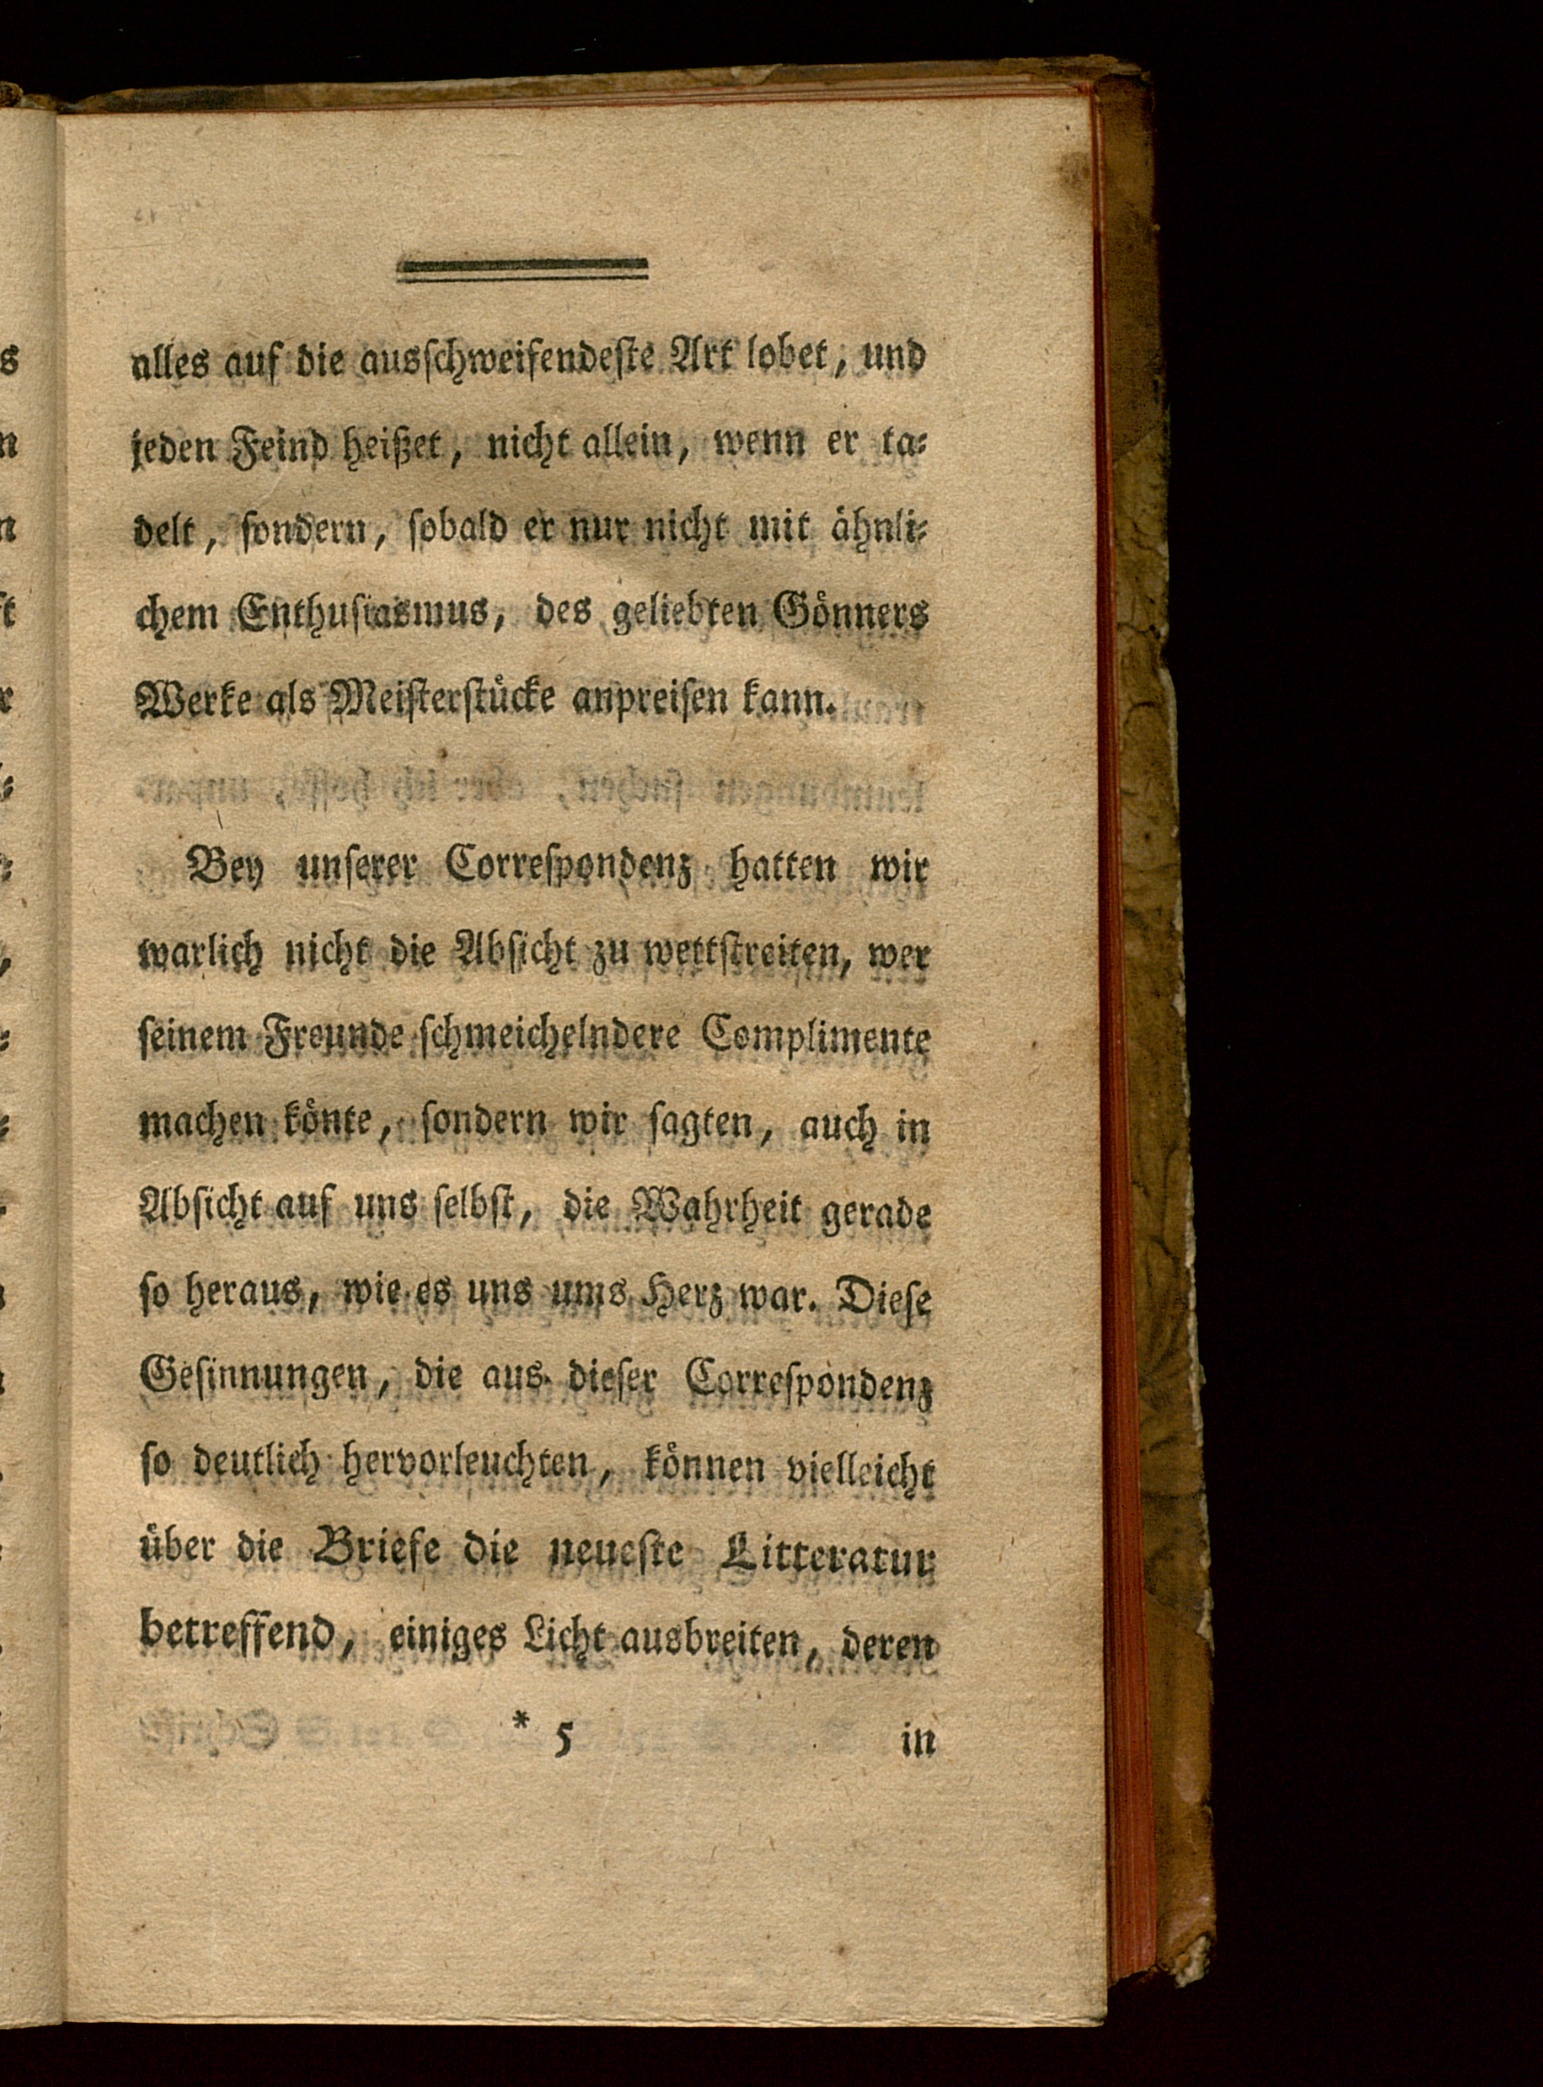 alles auf die ausſchweifendeſte Art lobet, und
jeden Feind heißet, nicht allein, wenn er ta⸗
delt, ſondern, ſobald er nur nicht mit ähnli⸗
chem Enthuſiasmus, des geliebten Gönners
Werke als Meiſterſtücke anpreiſen kann.
Bey unſerer Correſpondenz hatten wir
warlich nicht die Abſicht zu wettſtreiten, wer
ſeinem Freunde ſchmeichelndere Complimente
machen könte, ſondern wir ſagten, auch in
Abſicht auf uns ſelbſt, die Wahrheit gerade
ſo heraus, wie es uns ums Herz war. Dieſe
Geſinnungen, die aus dieſer Correſpondenz
ſo deutlich hervorleuchten, können vielleicht
über die Briefe die neueſte Litteratur
betreffend, einiges Licht ausbreiten, deren
* 5 in